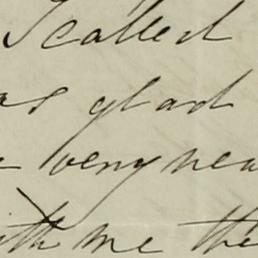 I called
as glad
very nea
ith me the